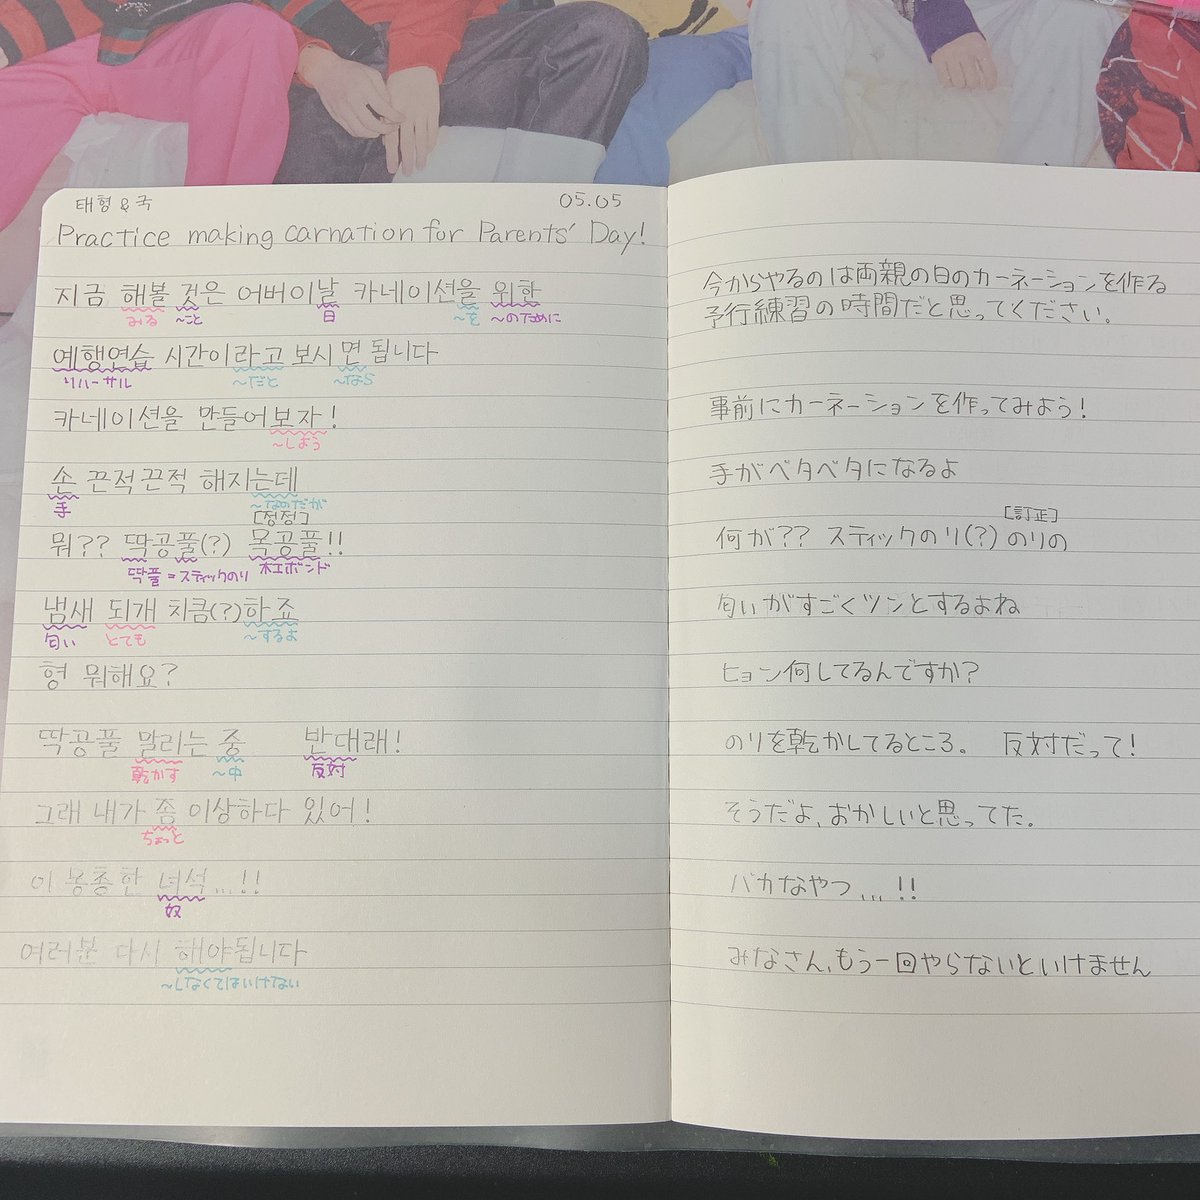 태형 & 국 05.05
Practice making carnation for Parents' Day!
지금 해볼 것은 어버이날 카네이션을 위한
みる ~こと 日 ~を ~のために
예행연습 시간이라고 보시면 됩니다
リハーサル ~だと ~なら
카네이션을 만들어보자!
~しよう
손 끈적끈적 해지는데
手 ~なのだが
[정정]
뭐?? 딱공풀(?) 목공풀!!
딱풀=スティックのり 木工ボンド
냄새 되개 치큼(?)하죠
匂い とても ~するよ
형 뭐해요?
딱공풀 말리는 중 반대래!
乾かす ~中 反対
그래 내가 좀 이상하다 있어!
ちょっと
이 농총한 녀석...!!
奴
여러분 다시 해야됩니다
~しなくてはいけない
今からやるのは両親の日のカーネーションを作る
予行練習の時間だと思ってください。
事前にカーネーションを作ってみよう!
手がベタベタになるよ
[訂正]
何が?? スティックのり(?) のりの
匂いがすごくツンとするよね
ヒョン何してるんですか?
のりを乾かしてるところ。 反対だって!
そうだよ、おかしいと思ってた。
バカなやつ...!!
みなさん、もう一回やらないといけません